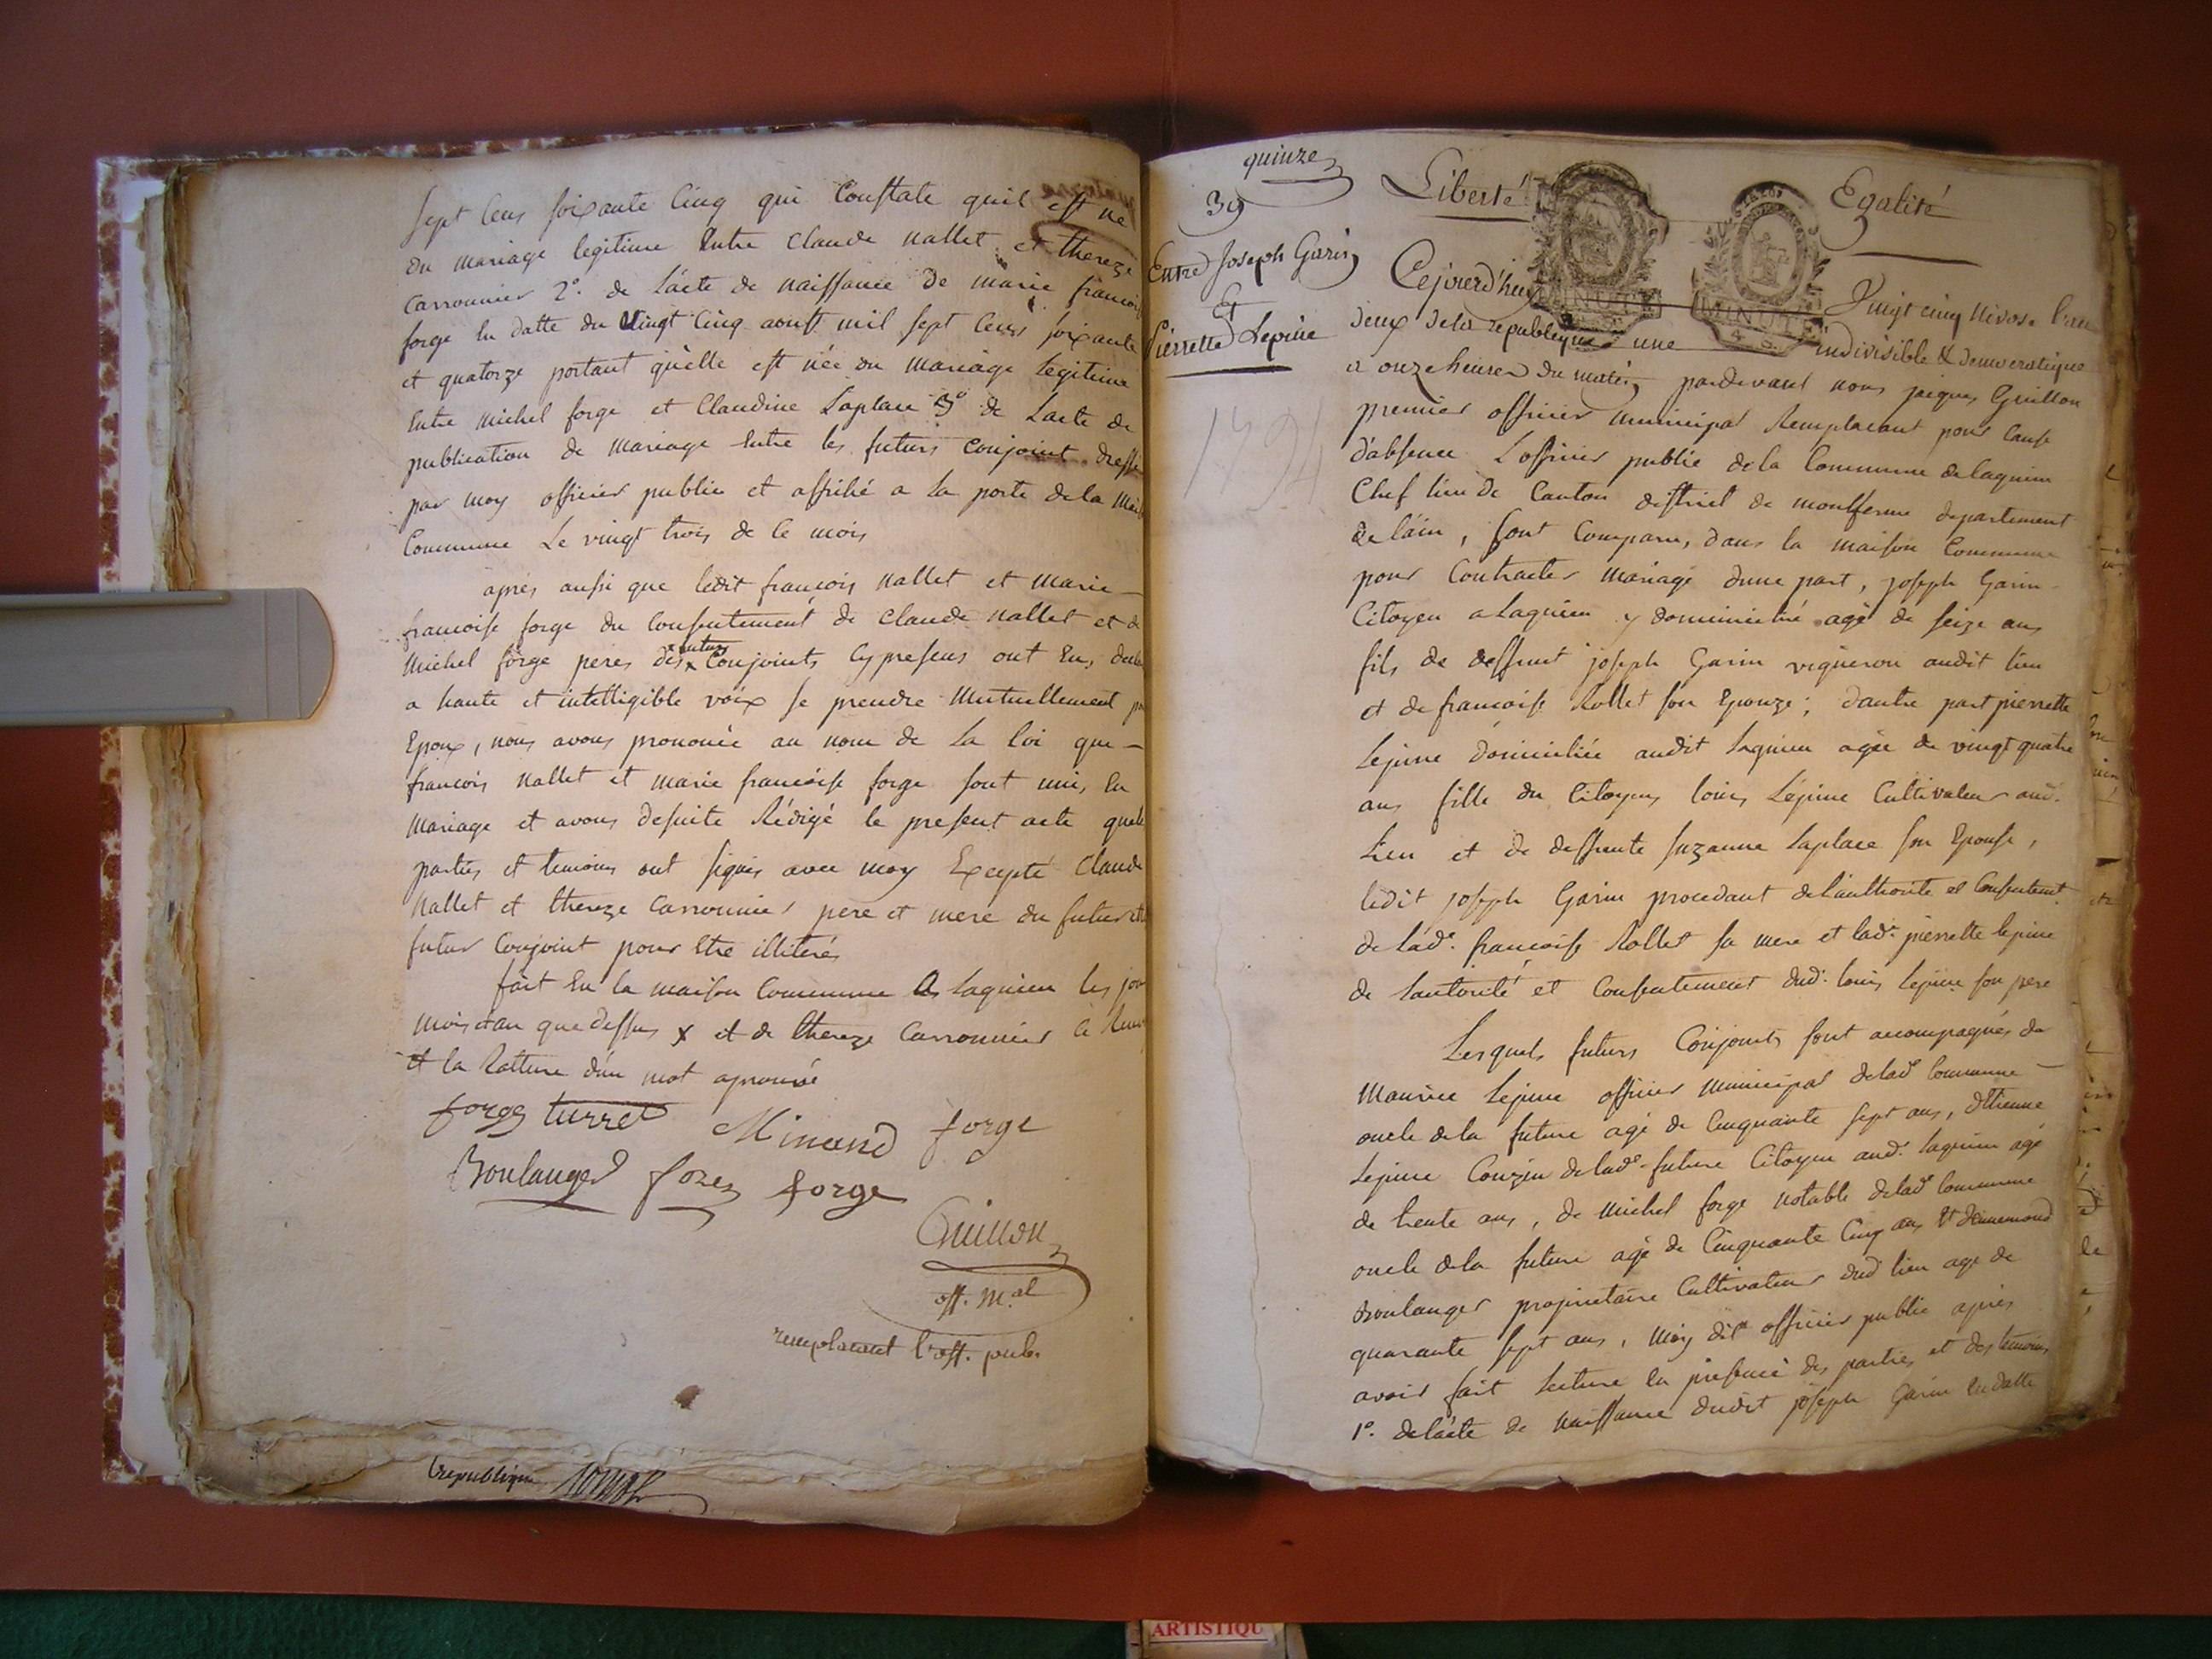 sept cens soixante cinq qui constate quil est ne
du mariage legitime entre claude nallet et thereze
carronnier 2°. de lácte de naissance de marie francois
forge en datte du vingt cinq aoust mil sept cens soixante
et quatorze portant quèlle est née du mariage legitime
entre michel forge et claudine Laplace 3° de Lacte de
publication de mariage entre les futurs conjoint dressé
par moy officier public et affiché a la porte de la mais
commune Le vingt trois de ce mois
aprés aussi que ledit francois nallet et marie
francoise forge du consentement de claude nallet et de
michel forge peres des x futurs conjoints cy presens ont eu, declar
a haute et intelligible voix se prendre mutuellement po
Epoux, nous avons prononcée au nom de la loi que
francois nallet et marie francoise forge sont unis en
mariage et avons desuite rédigé le present acte quele
parties et temoins ont signés avec moy Excepté claude
nallet et thereze carronnier pere et mere du futur et
futur conjoint pour etre illiterés
fait en la maison commune a Lagnieu les jour
mois et an que dessus x et de thereze carronnier ce renv
et la ratture d'un mot aprouvé
forge turret Minand forge
Boulanger forez forge
Guillon
off. m.al
remplacant l'off. pub.
republiqu
quinze
39
Entre Joseph Garin
Et
Pierrette Lepine
1794
Liberté Egalité
MINUTE
MINUTE
4. S.
Cejourd'hui Vingt cinq Nivose l'an
deux dela republique une indivisible & democratique
a onze heures du matin pardevant nous jacques Guillon
premier officier municipal Remplacant pour cause
d'absence L'officier public dela commune de lagnieu
chef lieu de canton district de montferme departement
de láin, sont comparus, dans la maison commune
pour contracter mariage dune part, joseph Garin
citoyen a Lagnieu y dommicilié agé de seize ans
fils de deffunt joseph Garin vigneron audit lieu
et de francoise Rollet son Epouze; dautre part pierrette
Lepine domiciliée audit Lagnieu agée de vingt quatre
ans fille du citoyens louis Lépine cultivateur aud.
Lieu et de deffunte suzanne Laplace son Epouse,
ledit joseph Garin procedant de l'authorite et consentemt.
de lád.e francoise Rollet sa mere et lad.e pierrette lepine
de lautorité et consentement dud. louis Lepine son pere
Lesquels futurs conjoints sont accompagnés de
maurice Lepine officier municipal delad.e commune
oncle dela future agé de cinquante sept ans, dEtienne
Lepine couzin delad.e future citoyen aud. Lagnieu agé
de trente ans, de michel forge notable delad.e commune
oncle dela future agé de cinquante cinq ans Et dennemond
Boulanger proprietaire cultivateur dud lieu age de
quarante sept ans, moy dit officier public apres
avoir fait Lecture en presence des parties et des temoins
1°. de lácte de naissance dudit joseph Garin en datte
ARTISTIQU